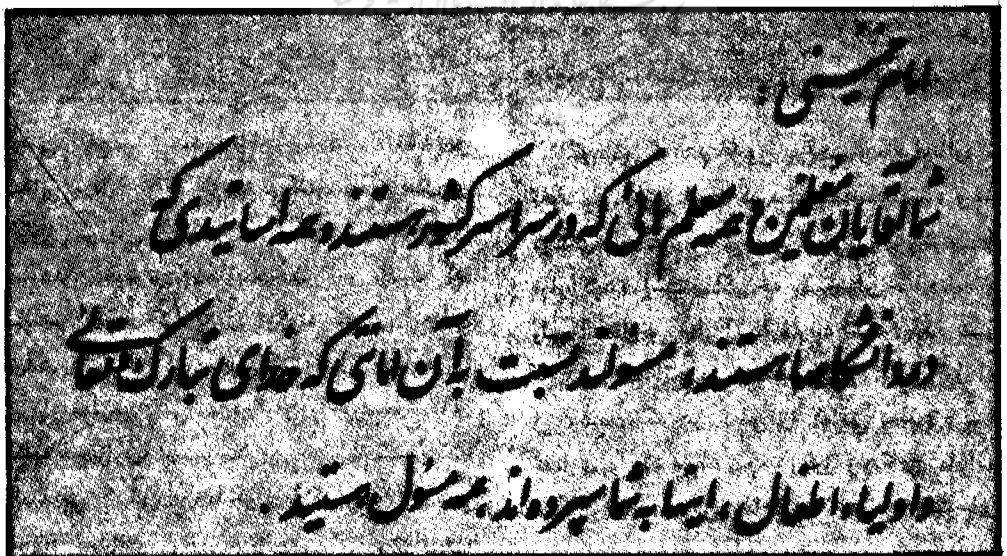 امام خمینی:
شما آقایان معلمین و همه معلم هائی که در سراسر کشور هستند و همه اساتیدی که
در دانشگاهها هستند، مسئولند نسبت به آن امانتی که خدای تبارک و تعالی
و اولیاء اطفال و اینها به شما سپرده‌اند همه مسئول هستید.